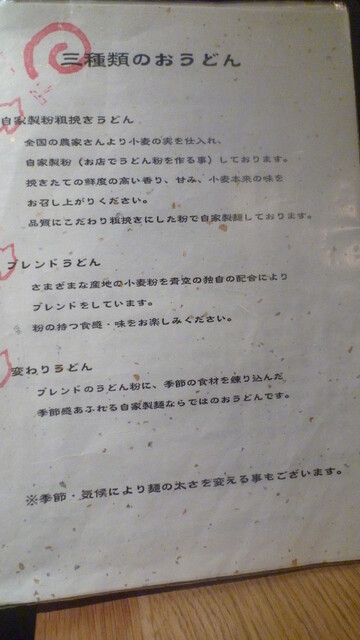 三種類のおうどん
自家製粉粗挽きうどん
全国の農家さんより小麦の実を仕入れ、
自家製粉（お店でうどん粉を作る事）しております。
挽きたての鮮度の高い香り、甘み、小麦本来の味を
お召し上がりください。
品質にこだわり粗挽きにした粉で自家製麺しております。
ブレンドうどん
さまざまな産地の小麦粉を青空の独自の配合により
ブレンドをしています。
粉の持つ食感・味をお楽しみください。
変わりうどん
ブレンドのうどん粉に、季節の食材を練り込んだ
季節感あふれる自家製麺ならではのおうどんです。
※季節・気候により麺の太さを変える事もございます。